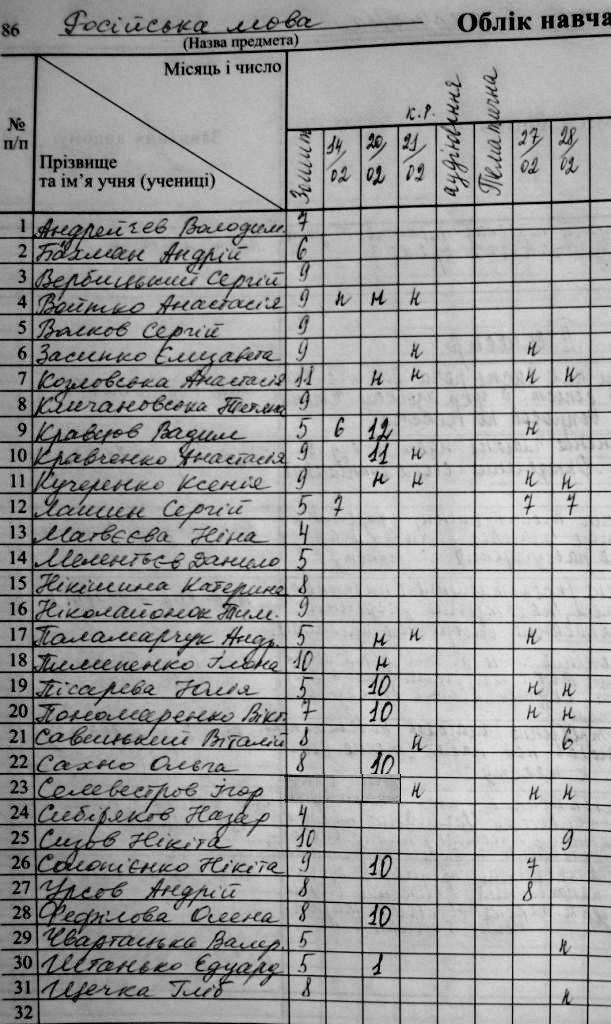 86 Російська мова Облік навча
(Назва предмета)
Місяць і число
№ п/п
Прізвище
та ім'я учня (учениці)
Зошит 14/02 20/02 к.р. 21/02 аудіювання Тематична 27/02 28/02
1 Андрейчев Володим. 7
2 Бахман Андрій 6
3 Вербицький Сергій 9
4 Войтко Анастасія 9 н н н
5 Волков Сергій 9
6 Засинко Єлизавета 9 н н
7 Козловська Анастасія 11 н н н н
8 Кличановська Тетяна 9
9 Кравцов Вадим 5 6 12 н
10 Кравченко Анастасія 9 11 н
11 Кучеренко Ксенія 9 н н н н
12 Лашин Сергій 5 7 7 7
13 Матвєєва Ніна 4
14 Мелентьєв Данило 5
15 Нікішина Катерина 8
16 Ніколайонок Тим. 9
17 Паламарчук Андр. 5 н н н
18 Пилипенко Ілона 10 н
19 Пісарєва Юлія 5 10 н н
20 Пономаренко Вікт. 7 10 н н
21 Савицький Віталій 8 н 6
22 Сахно Ольга 8 10
23 Селевестров Ігор н н н
24 Сибіряков Назар 4
25 Сизов Нікіта 10 9
26 Солопієнко Нікіта 9 10 7
27 Урсов Андрій 8 8
28 Феділова Олена 8 10
29 Чвартацька Валер. 5 н
30 Штанько Едуард 5 1
31 Щечка Гліб 8 н
32